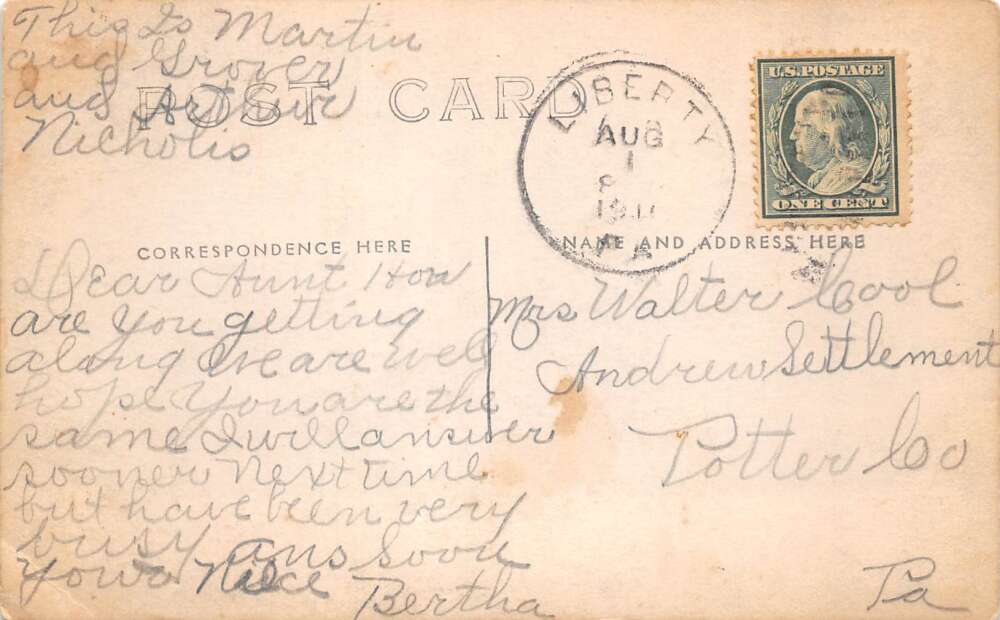 This Is Martin
and Grover
and Arthur
Nicholis
POST CARD
LIBERTY
AUG
1
8
191
PA
U.S. POSTAGE
ONE CENT
CORRESPONDENCE HERE
NAME AND ADDRESS HERE
Dear Aunt How
are you getting
along we are well
hope you are the
same I will answer
sooner Next time
but have been very
busy ans Soon
your Niece
Bertha
Mrs Walter Cool
Andrew Settlement
Potter Co
Pa